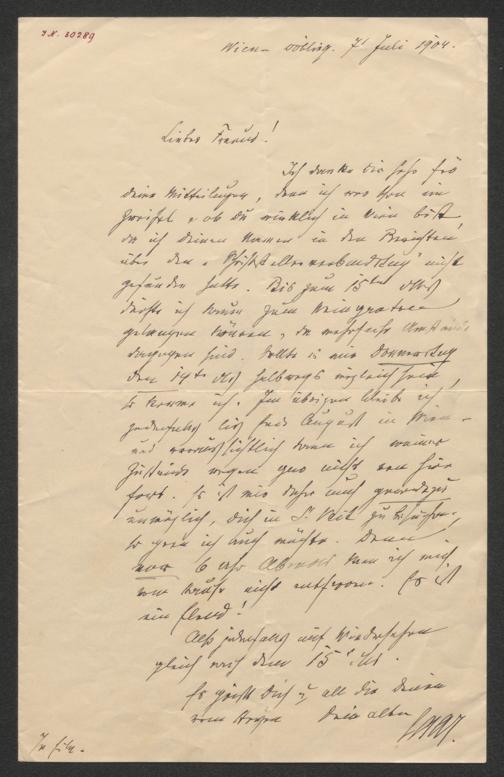 I.N. 50289
Wien – Döbling. 7t Juli 1904.
Lieber Freund!
Ich danke Dir sehr für
Deine Mitteilungen, denn ich war schon im
Zweifel, ob Du wirklich in Wien bist,
da ich Deinen Namen in den Berichten
über den „Schriftstellerverbandstag" nicht
gefunden hatte. Bis zum 15ten
dürfte ich kaum zum
gelangen können, da mehrfache Umstände
dagegen sind. Sollte es mir Donnerstag
den 14ten halbwegs möglich sein,
so komme ich. Im übrigen bleibe ich
jedenfalls bis Ende August in Wien –
und voraussichtlich kann ich meiner
Zustände wegen gar nicht von hier
fort. Es ist mir daher auch geradezu
unmöglich, Dich in St. Veit zu besuchen,
so gern ich auch möchte. Denn
vor 6 Uhr Abends kann ich mich
vom Hause nicht entfernen. Es ist
ein Elend!
Also jedenfalls auf Wiedersehen
gleich nach dem 15t
Es grüßt Dich u all die Deinen
vom Herzen Dein alter
Saar.
In Eile.